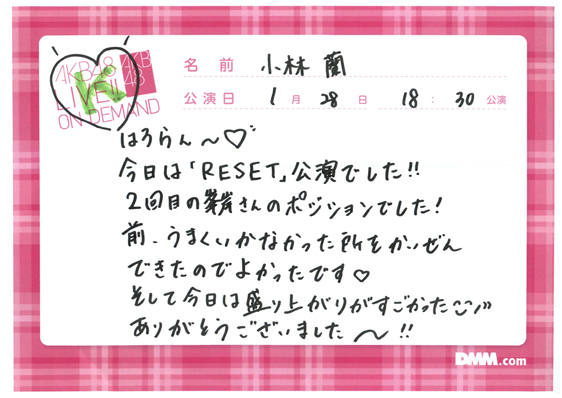 AKB48
LIVE!!
ON DEMAND
AKB
48
名前 小林 蘭
公演日 1月28日 18:30公演
はろらん〜♡
今日は「RESET」公演でした!!
2回目の峯岸さんのポジションでした!
前、うまくいかなかった所をかいぜん
できたのでよかったです♡
そして今日は盛り上がりがすごかった
ありがとうございました〜!!
DMM.com